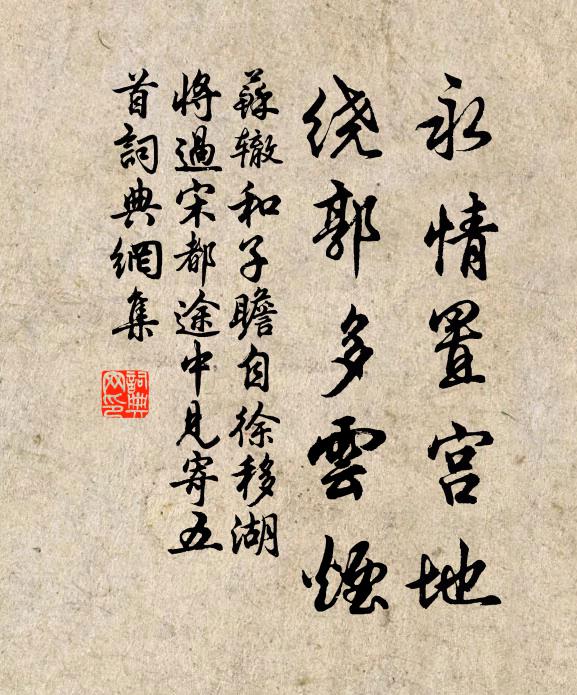 永情置宫地
绕郭多雲煙
蘇辙和子瞻自徐移湖
將過宋都途中見寄五
首詞典網集
詞典
网印